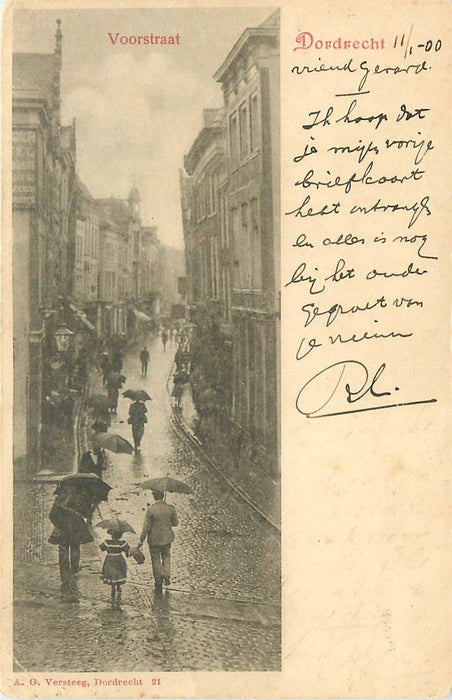 Voorstraat
Dordrecht 11/1-00
vriend Gerard.
Ik hoop dat
je mijn vorige
briefkaart
hebt ontvangen
en alles is nog
bij het oude
gegroet van
je vriend
A. G. Versteeg, Dordrecht 21